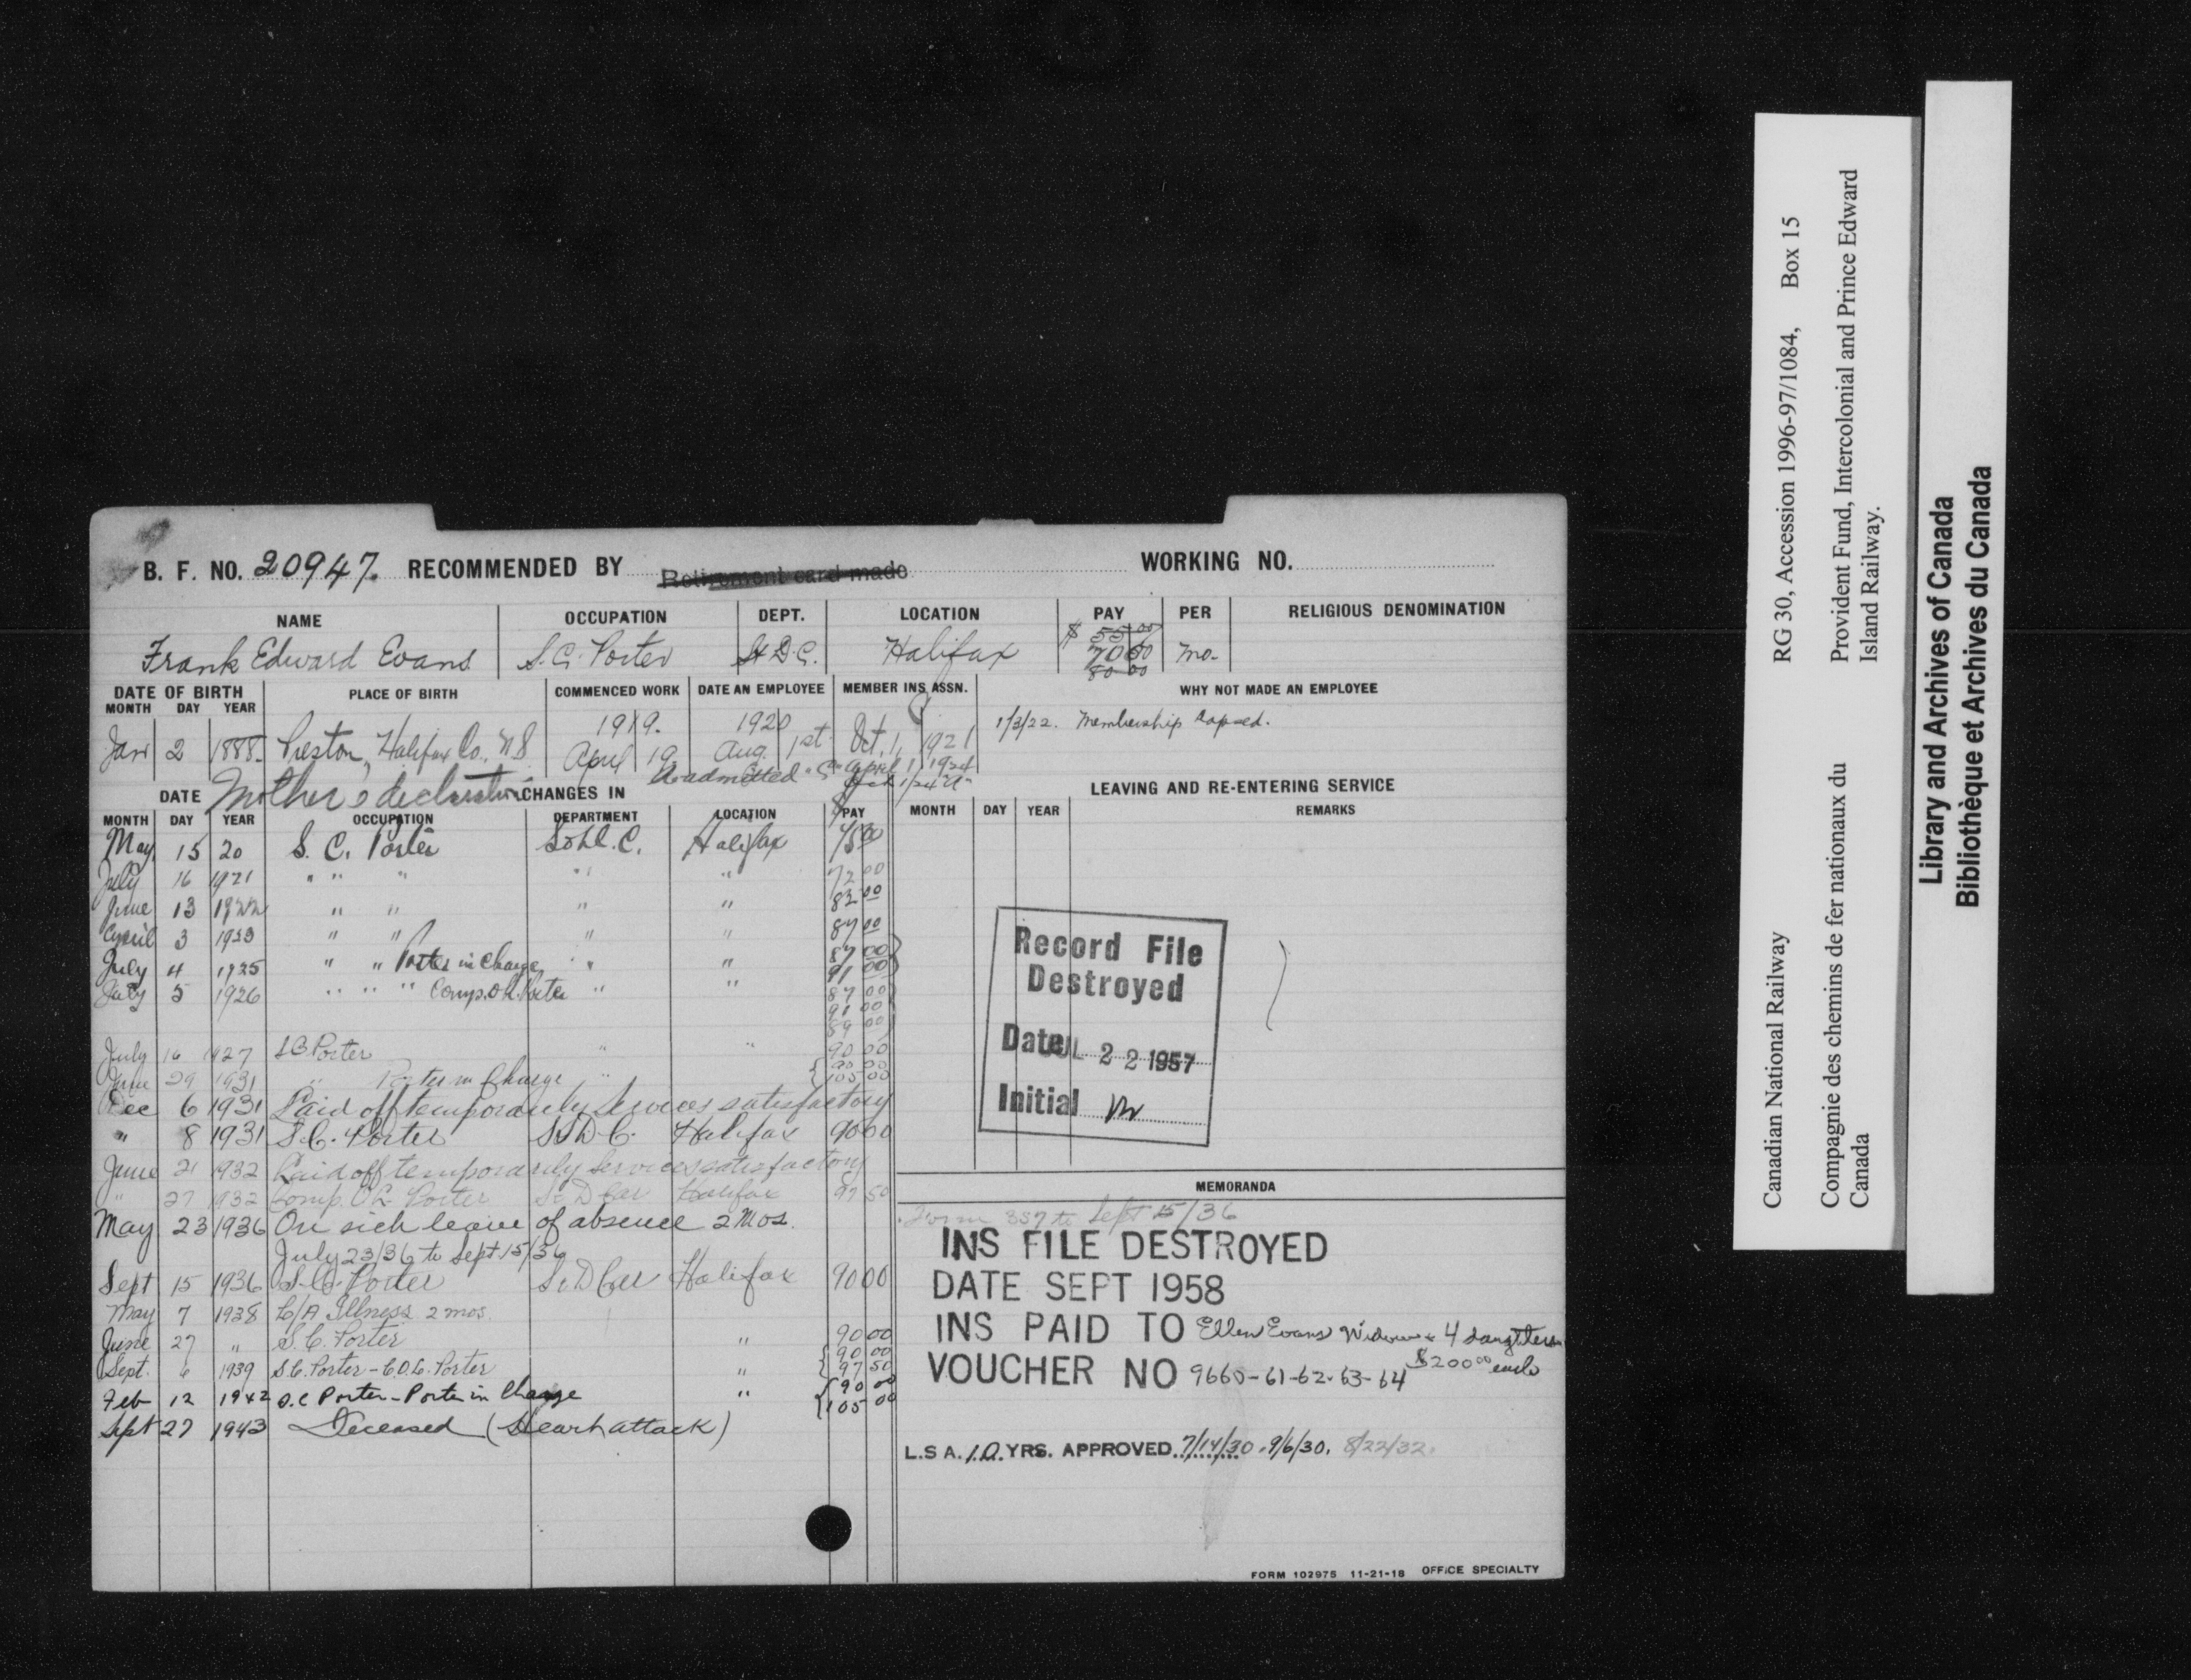 B. F. NO. 20947. RECOMMENDED BY Retirement card made WORKING NO.
NAME OCCUPATION DEPT. LOCATION PAY PER RELIGIOUS DENOMINATION
Frank Edward Evans S.C. Porter S&D.C. Halifax $ 55 00 70 00 80 00 mo.
DATE OF BIRTH PLACE OF BIRTH COMMENCED WORK DATE AN EMPLOYEE MEMBER INS. ASSN. WHY NOT MADE AN EMPLOYEE
MONTH DAY YEAR
1919. 1920 1/3/22. Membership lapsed.
Jan 2 1888. Preston, Halifax Co., N S April 19 Aug. 1st Oct. 1, 1921
Readmitted "C" April 1, 1924
1/24 "A"
DATE Mother's declaration CHANGES IN LEAVING AND RE-ENTERING SERVICE
MONTH DAY YEAR OCCUPATION DEPARTMENT LOCATION PAY MONTH DAY YEAR REMARKS
May 15 20 S. C. Porter Halifax 75 00
July 16 1921 " " " " " 72 00
June 13 1922 " " " " 82 00
April 3 1923 " " " " 87 00
July 4 1925 " " Porter in Charge " " 87 00 91 00
July 5 1926 " " " Comp. O.L. Porter " " 87 00 91 00 89 00
July 16 1927 S C Porter " " 90 00
June 29 1931 " Porter in Charge " 90 00 105 00
Dec 6 1931 Laid off temporarily Services satisfactory
" 8 1931 S.C. Porter S&D C. Halifax 90 00
June 21 1932 Laid off temporarily Services satisfactory
" 27 1932 Comp. O L Porter S & D Car Halifax 97 50
May 23 1936 On sick leave of absence 2 Mos.
July 23/36 to Sept 15/36
Sept 15 1936 S.C. Porter S & D Car Halifax 90 00
May 7 1938 L/A Illness 2 mos.
June 27 " S.C. Porter " 90 00
Sept. 6 1939 S.C. Porter - C.O.L. Porter " 90 00 97 50
Feb 12 1942 S.C Porter - Porter in Charge " 90 00 105 00
Sept 27 1943 Deceased (Heart attack)
Record File
Destroyed
Date JUL 22 1957
Initial
MEMORANDA
Form 357 to Sept 15/36
INS FILE DESTROYED
DATE SEPT 1958
INS PAID TO Ellen Evans Widow & 4 daughters
$200 00 each
VOUCHER NO 9660-61-62-63-64
L.S A. 10 YRS. APPROVED 7/14/30. 9/6/30. 8/22/32.
FORM 102975 11-21-18 OFFICE SPECIALTY
Canadian National Railway RG 30, Accession 1996-97/1084, Box 15
Compagnie des chemins de fer nationaux du
Canada
Provident Fund, Intercolonial and Prince Edward
Island Railway.
Library and Archives of Canada
Bibliothèque et Archives du Canada